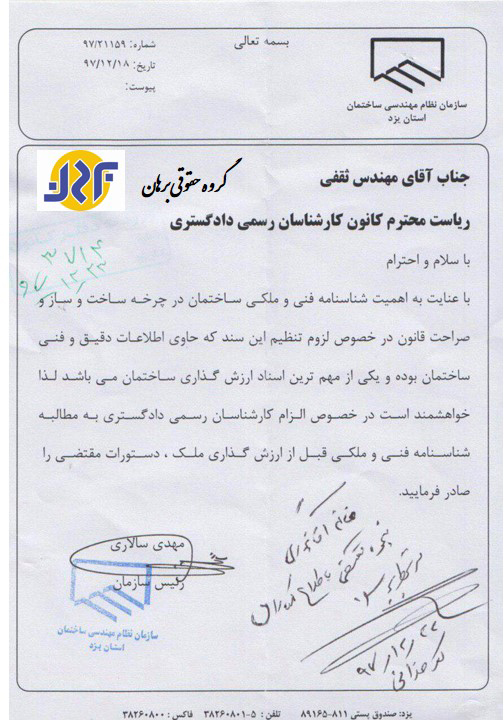 بسمه تعالی
شماره: ۹۷/۲۱۱۵۹
تاریخ: ۹۷/۱۲/۱۸
پیوست:
سازمان نظام مهندسی ساختمان
استان یزد
گروه حقوقی برهان
جناب آقای مهندس ثقفی
ریاست محترم کانون کارشناسان رسمی دادگستری
با سلام و احترام
با عنایت به اهمیت شناسنامه فنی و ملکی ساختمان در چرخه ساخت و ساز و
صراحت قانون در خصوص لزوم تنظیم این سند که حاوی اطلاعات دقیق و فنی
ساختمان بوده و یکی از مهم ترین اسناد ارزش گذاری ساختمان می باشد لذا
خواهشمند است در خصوص الزام کارشناسان رسمی دادگستری به مطالبه
شناسنامه فنی و ملکی قبل از ارزش گذاری ملک ، دستورات مقتضی را
صادر فرمایید.
مهدی سالاری
رئیس سازمان
سازمان نظام مهندسی ساختمان
استان یزد
۳۷۱۴
۹۷/۱۲/۲۲
یزد: صندوق پستی ۸۱۱-۸۹۱۶۵ تلفن : ۵-۳۸۲۶۰۸۰۱ فاکس : ۳۸۲۶۰۸۰۰